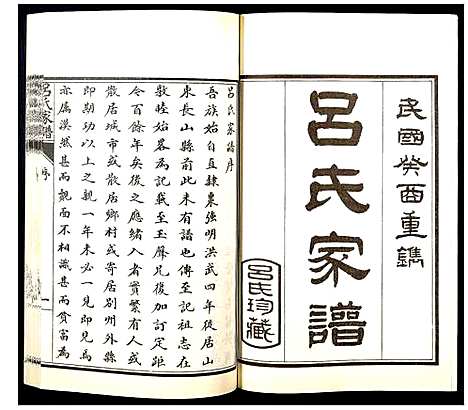 民國癸酉重鐫
呂氏家譜
呂氏珍藏
呂氏家譜序
吾族始自直隸棗強明洪武四年後居山
東長山縣前此未有譜也傳至記祖志在
敬睦始畧為記載至玉聲兄復加訂定距
今百餘年矣後之應緒入者實繁有人或
散居城市或散居鄉村或寄居別州外縣
即期功以上之親一年未必一見即一見
亦屬漠然甚而觀面不相識甚而貧富為
呂氏家譜
序
一